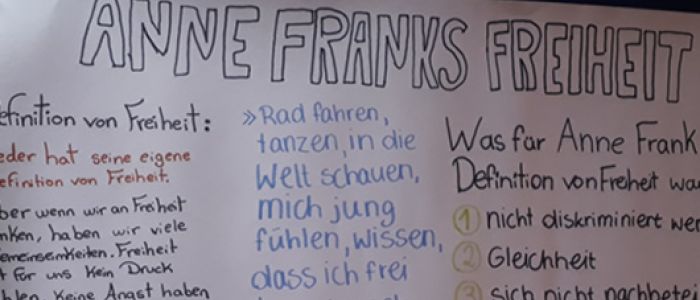 ANNE FRANKS FREIHEIT
efinition von Freiheit:
eder hat seine eigene
efinition von Freiheit.
ber wenn wir an Freiheit
nken, haben wir viele
emeinsamkeiten. Freiheit
t für uns kein Druck
hlen. Keine Angst haben
»Rad fahren,
tanzen, in die
Welt schauen,
mich jung
fühlen, wissen,
dass ich frei
Was für Anne Frank
Definition von Freiheit wa
1 nicht diskriminiert wer
2 Gleichheit
3 sich nicht